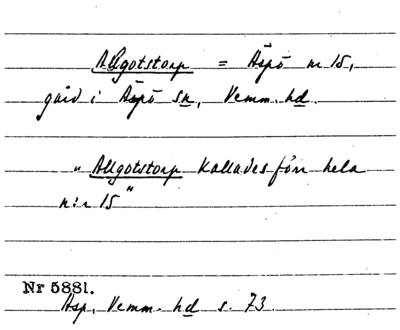 Allgotstorp = Äspö nr 15,
gård i Äspö sn, Vemm. hd.
"Allgotstorp kallades förr hela
n:r 15"
Nr 5881.
Asp, Vemm. hd s. 73